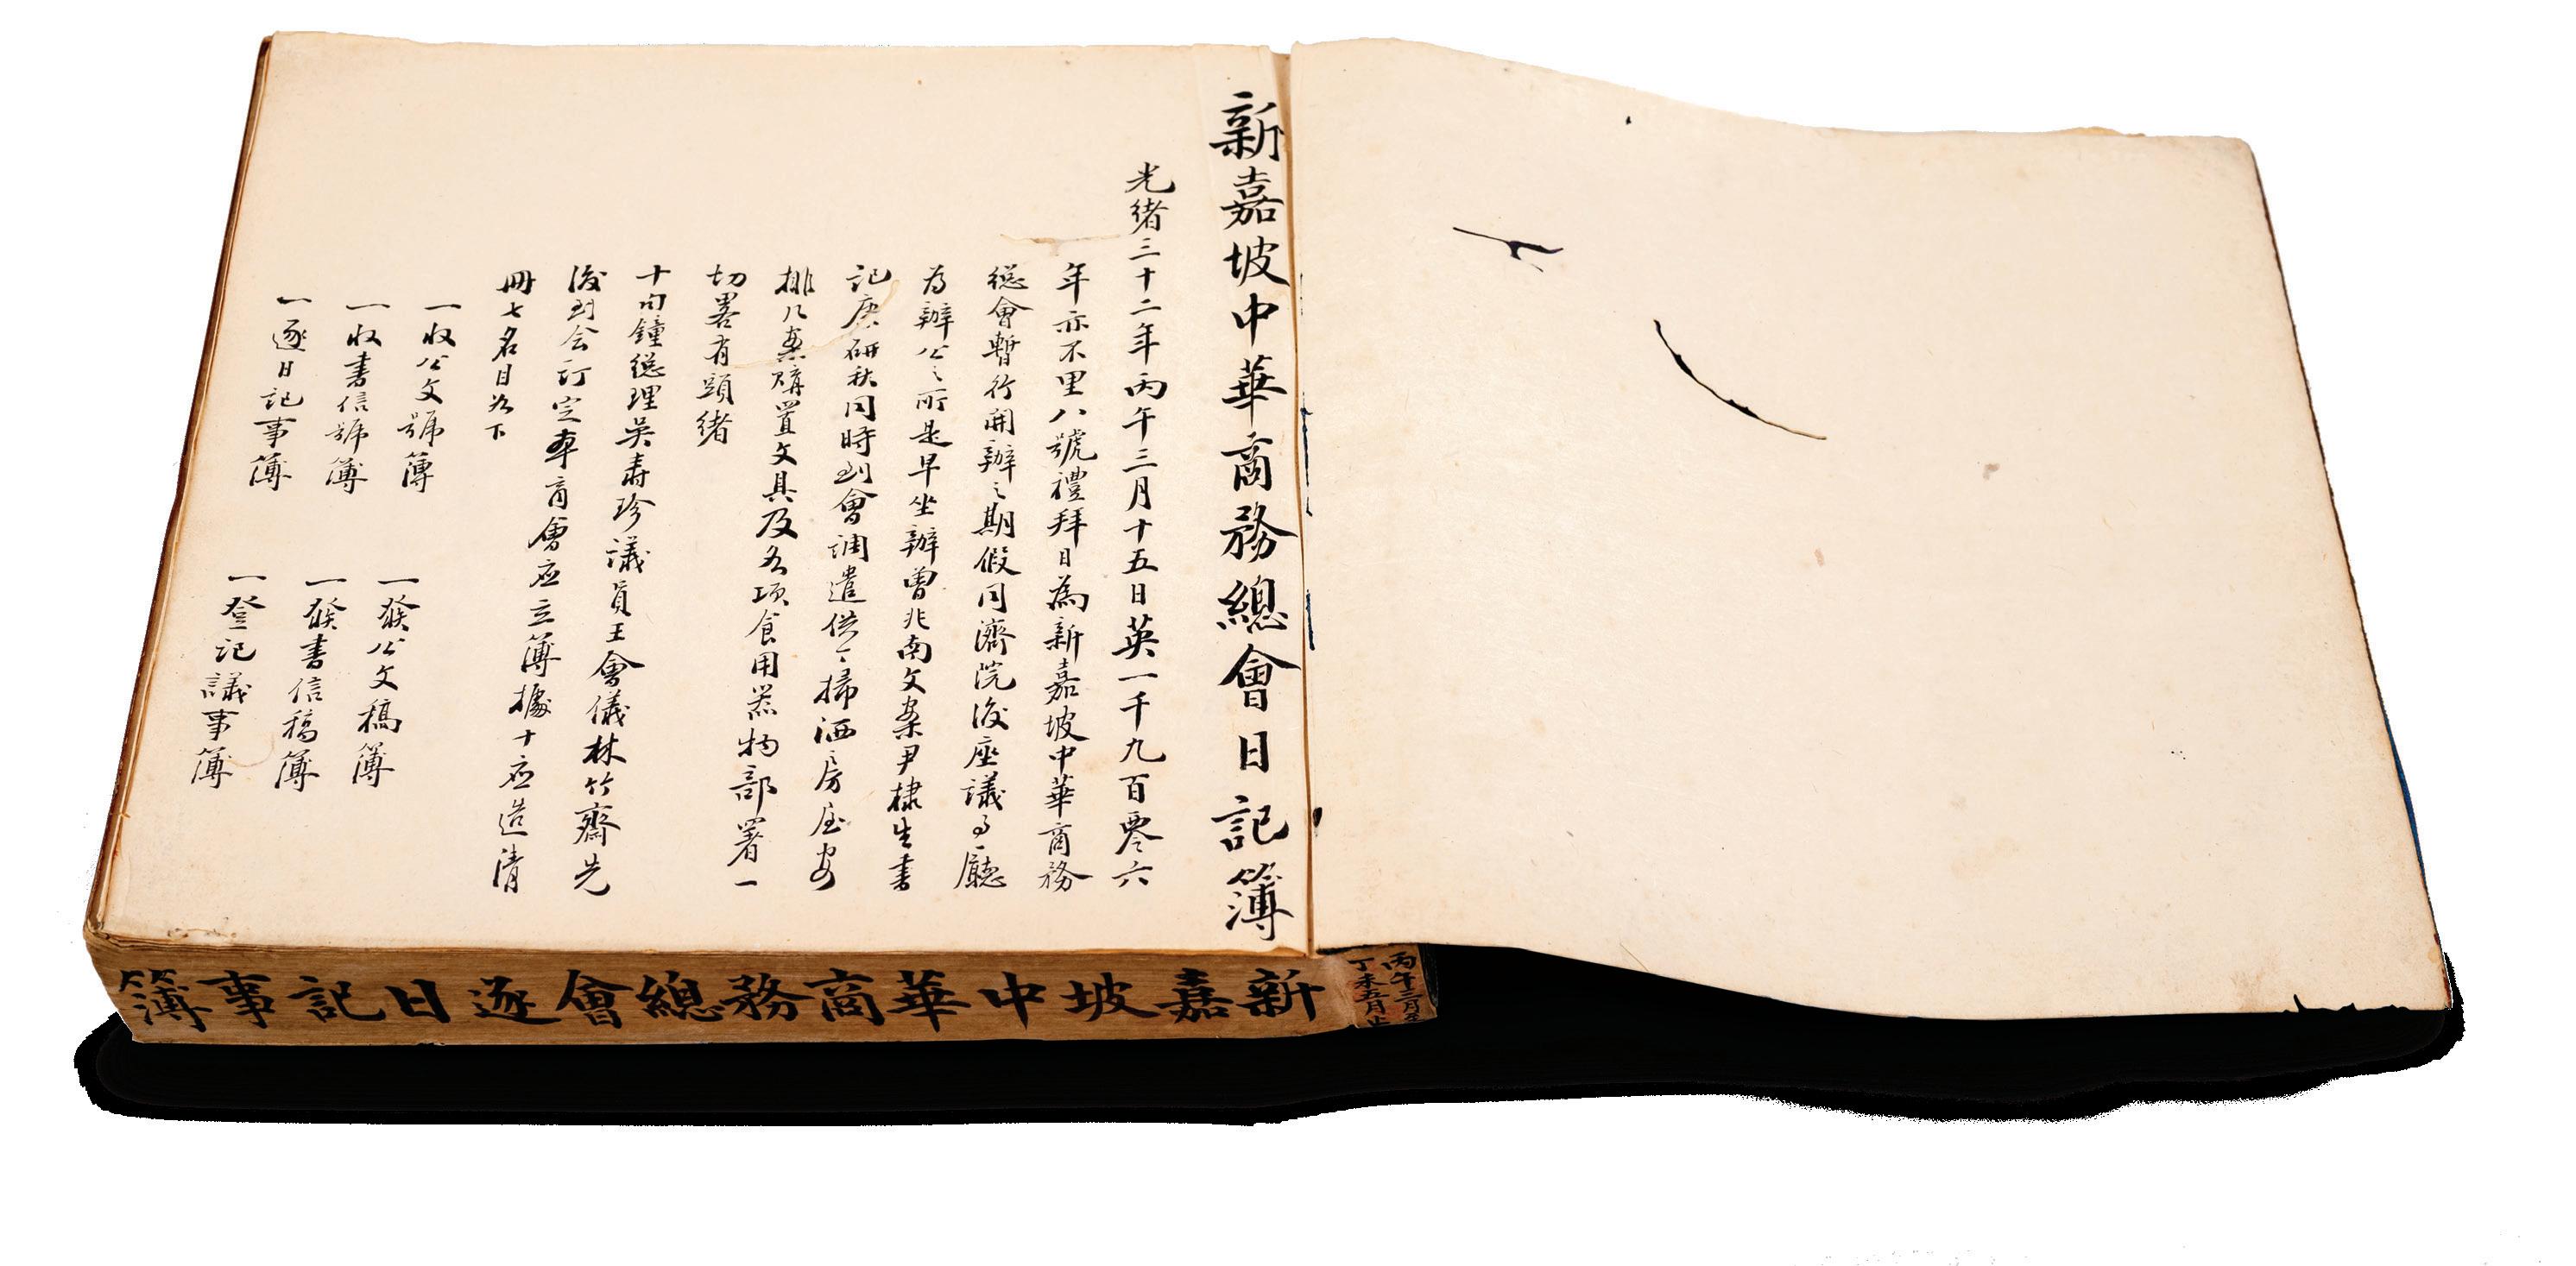 新嘉坡中華商務總會日記簿
光緒三十二年丙午三月十五日英一千九百零六
年亦不里八號禮拜日為新嘉坡中華商務
總會暫行開辦之期假同濟院後座議事廳
為辦公之所是早坐辦曾兆南文案尹棣生書
記康研秋同時到會調遣供工掃洒房屋安
排几案購置文具及各項食用器物部署一
切畧有頭緒
十句鐘總理吳壽珍議員王會儀林竹齋先
後到会訂定本商會应立簿據十应造清
冊七名目如下
一收公文號簿 一發公文稿簿
一收書信號簿 一發書信稿簿
一逐日記事簿 一登記議事簿
新嘉坡中華商務總會逐日記事簿
丙午三月至
丁未五月止